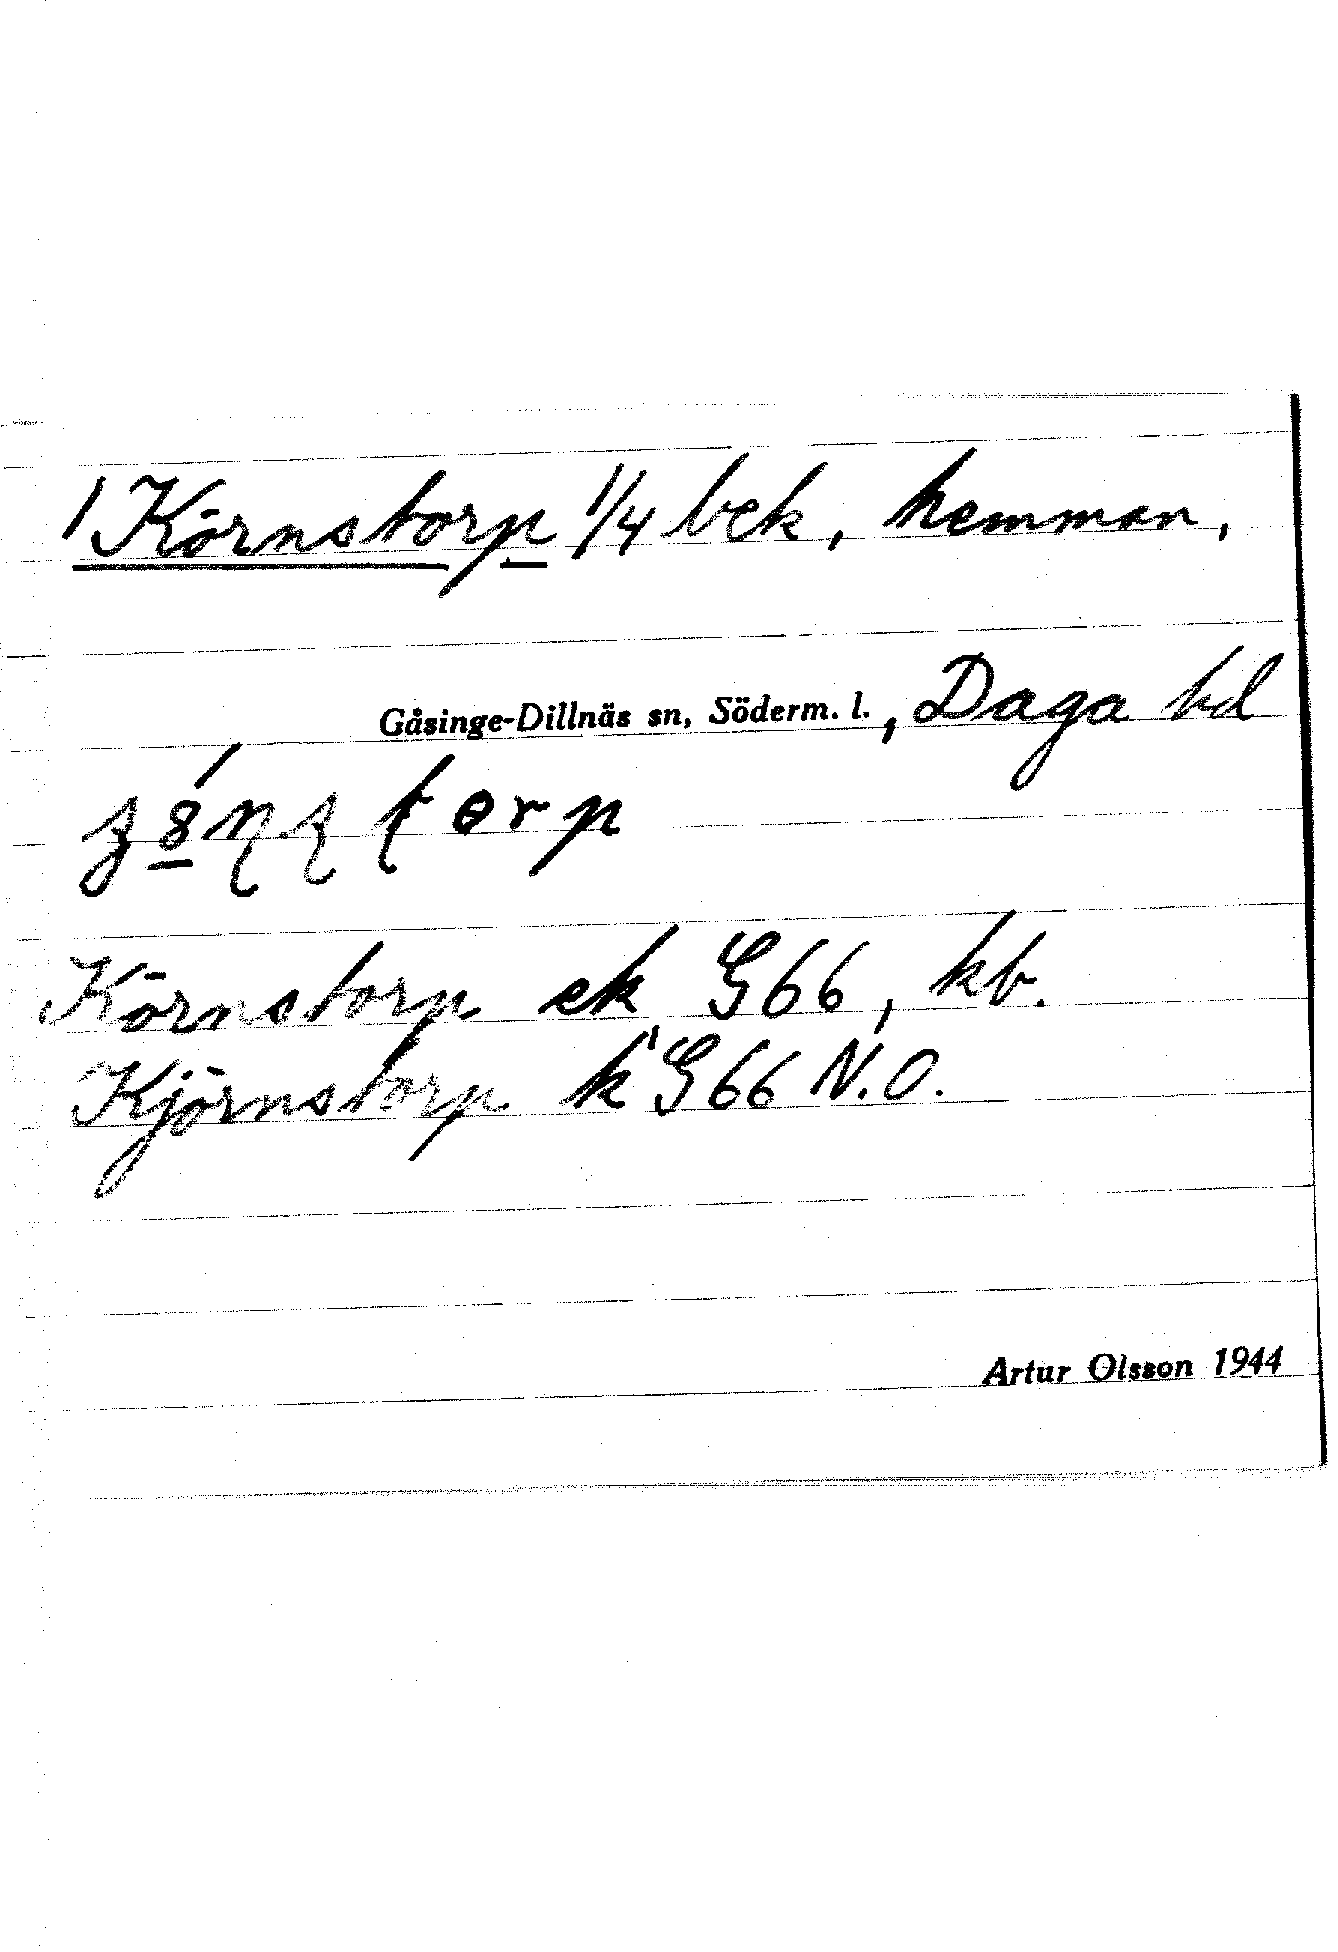 1 Körnstorp 1/4 bek, hemman,
Gåsinge-Dillnäs sn, Söderm. l., Daga hd
Körnstorp ek G66, kb.
Kjörnstorp k G66 N.O.
Artur Olsson 1944